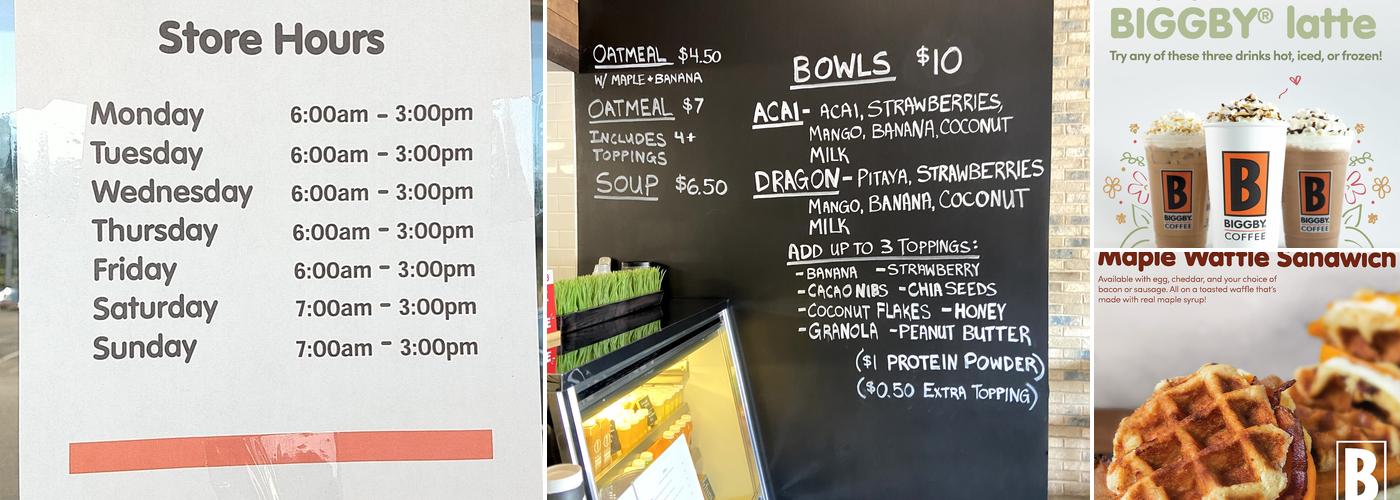 Store Hours
Monday 6:00am - 3:00pm
Tuesday 6:00am - 3:00pm
Wednesday 6:00am - 3:00pm
Thursday 6:00am - 3:00pm
Friday 6:00am - 3:00pm
Saturday 7:00am - 3:00pm
Sunday 7:00am - 3:00pm
OATMEAL $4.50
W/ MAPLE + BANANA
OATMEAL $7
INCLUDES 4+
TOPPINGS
SOUP $6.50
BOWLS $10
ACAI- ACAI, STRAWBERRIES,
MANGO, BANANA, COCONUT
MILK
DRAGON- PITAYA, STRAWBERRIES
MANGO, BANANA, COCONUT
MILK
ADD UP TO 3 TOPPINGS:
-BANANA -STRAWBERRY
-CACAO NIBS -CHIA SEEDS
-COCONUT FLAKES -HONEY
-GRANOLA -PEANUT BUTTER
($1 PROTEIN POWDER)
($0.50 EXTRA TOPPING)
BIGGBY® latte
Try any of these three drinks hot, iced, or frozen!
B
BIGGBY
COFFEE
B
BIGGBY
COFFEE
B
BIGGBY
COFFEE
Maple Waffle Sandwich
Available with egg, cheddar, and your choice of
bacon or sausage. All on a toasted waffle that's
made with real maple syrup!
B